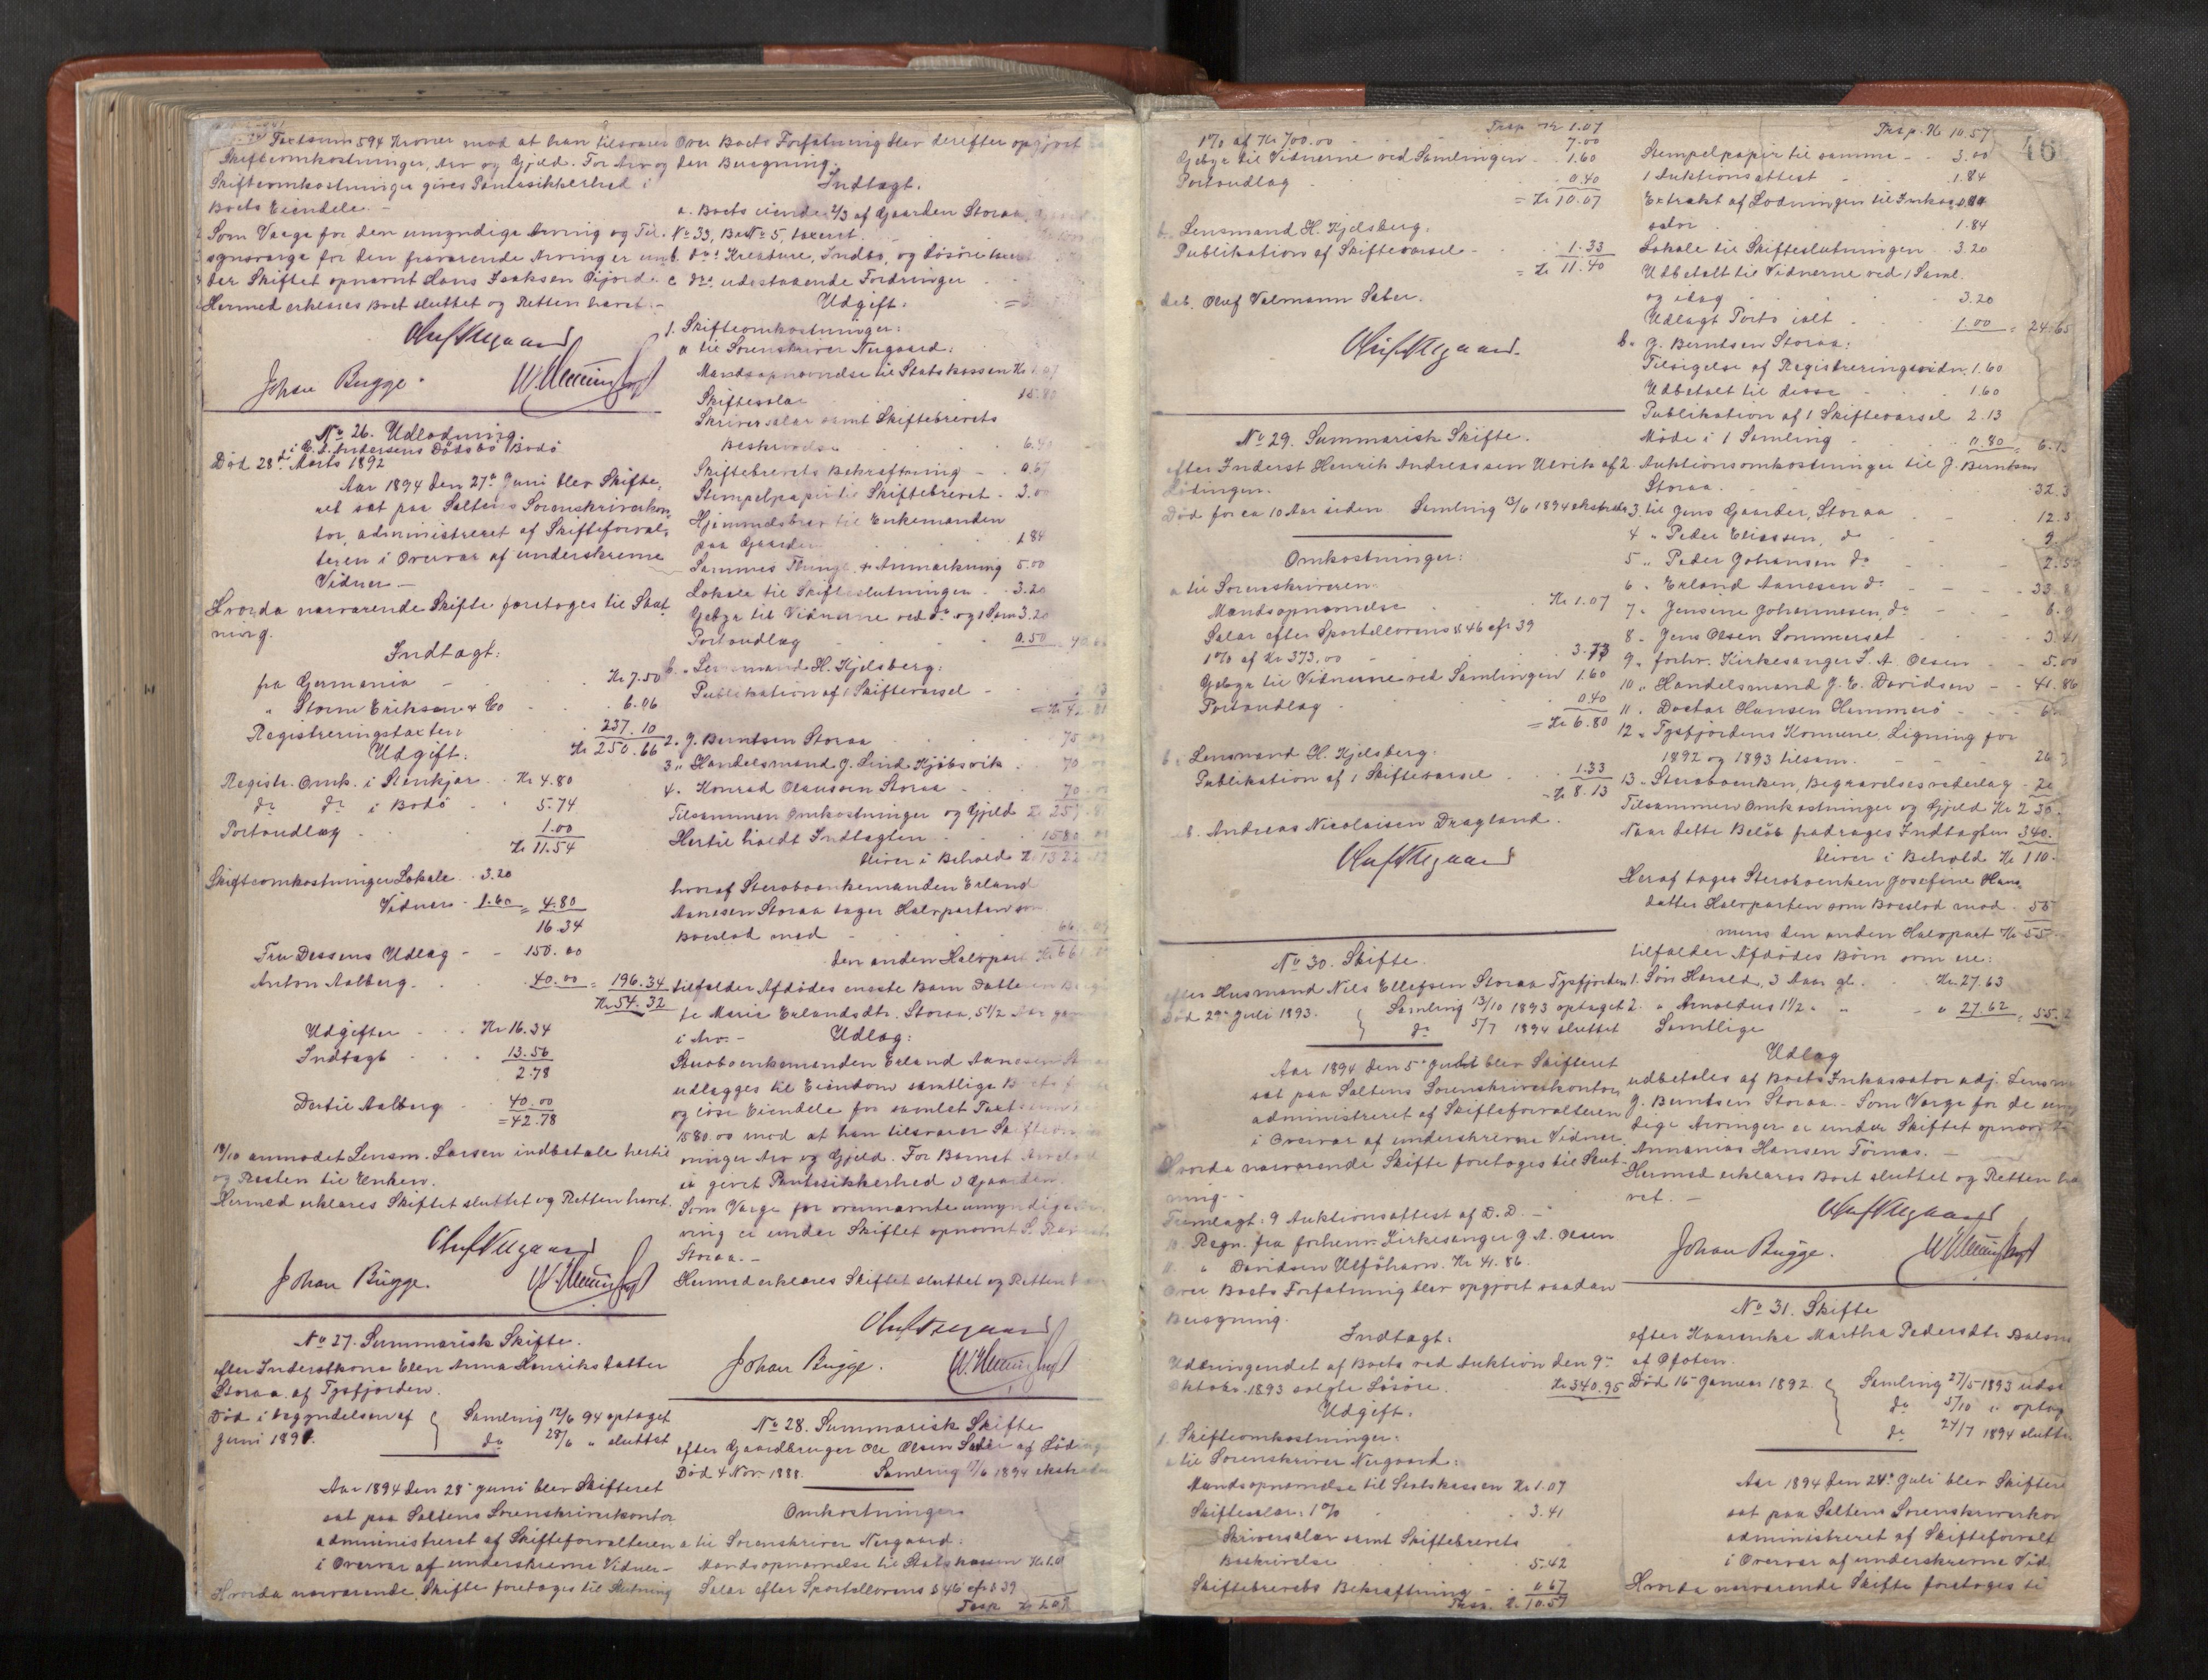 Taxtsum 594 Kroner mod at han tilsvarer
Skifteomkostninger, Arv og Gjæld. For Arv og
Skifteomkostninger gives Pantesikkerhed i
Boets Eiendele. -
Som Værge for den umyndige Arving og Til-
synsværge for den fraværende Arving er un-
der Skiftet opnævnt Hans Isaksen
Hermed erklæres Boet sluttet og Retten hævet. -
Johan Bugge.
No 26. Udlodning.
i C. L. Andersens Dödsbo Bodö
Död 28de Marts 1892
Aar 1894 den 27de Juni blev Skifte-
ret sat paa Saltens Sorenskriverkon-
tor, administreret af Skifteforval-
teren i Overvær af underskrevne
Vidner -
Hvorda nærværende Skifte foretoges til Slut-
ning.
Indtægt:
fra Germania - Kr 7.50
" Storm Eriksen & Co - 6.06
Registreringstaxten 237.10
Kr 250.66
Udgift:
Registr. Omk. i Stenkjær. Kr 4.80
do do i Bodö - 5.74
Portoudlæg 1.00
Kr 11.54
Skifteomkostninger Lokale 3.20
Vidner 1.60 = 4.80
16.34
Fru Dessens Udlæg - - 150.00
Anton Aalberg. 40.00 = 196.34
Kr 54.32
Udgifter Kr 16.34
Indtægt 13.56
2.78
Dertil Aalberg 40.00
= 42.78
19/10 anmodet Lensm. Larsen indbetale hertil
og Resten til Enken.
Hermed erklæres Skiftet sluttet og Retten hævet.
Johan Bugge.
No 27. Summarisk Skifte.
efter Inderstkone Elen Anna Henriksdatter
Storaa af Tysfjorden.
Död i begyndelsen af Samling 12/6 94 optaget
Juni 189 do 28/6 " sluttet
Aar 1894 den 28 Juni blev Skifteret
sat paa Saltens Sorenskriverkontor
administreret af Skifteforvalteren
i Overvær af underskrevne Vidner -
Hvorda nærværende Skifte foretoges til Slutning
Over Boets Forfatning blev derefter opgjort
den Beregning.
Indtægt.
a. Boets eiende 2/3 af Gaarden Storaa,
No 33, BNo 5, taxeret.
b. do Kreature, Indbo, og Lösöre
c do udestaaende Fordringer
Udgift:
1. Skifteomkostninger:
a til Sorenskriver Nergaard:
Mandsopnævnelse til Statskassen Kr 1.07
Skiftesalær 15.80
Skriversalær samt Skiftebrevets
Beskrivelse 6.
Skiftebrevets Bekræftning - 0.67
Stempelpapir til Skiftebrevet - 3.00
Hjemmelsbrev til Enkemanden
paa Gaarden 1.84
Sammes Thingl. & Anmærkning 5.00
Lokale til Skifteslutningen - 3.20
Gebyr til Vidnerne ved do og 1 Sam 3.20
Portoudlæg 0.50
b. Lensmand H. Kjelsberg:
Publikation af 1 Skiftevarsel -
2. J. Berntsen Storaa 75
3 " Handelsmand J. Lind Kjöbsvik 70
4. Konrad Olaussen Storaa - 70
Tilsammen Omkostninger og Gjæld
Hertil holdt Indtægten 1580
bliver i Behold Kr 1322
hvoraf Sterboenkemanden Erland
Aanesen Storaa tager Halvparten som
Boeslod med
den anden Halvpart
tilfalder Afdödes eneste Barn Datteren
Marie Erlandsdtr. Storaa, 5 1/2 Aar
i Arv. -
Udlæg:
Sterboenkemanden Erland Aanesen
udlægges til Eiendom samtlige Boets
og löse Eiendele for samlet Taxtsum
1580.00 mod at han tilsvarer Skifteom-
ninger Arv og Gjæld. For Barnet
er givet Pantesikkerhed i Gaarden.
Som Værge for ovennævnte umyndige Ar-
ving er under Skiftet opnævnt
Storaa. -
Hermed erklæres Skiftet sluttet og Retten
Johan Bugge.
No 28. Summarisk Skifte
efter Gaardbruger Ole Olsen Sæter af Löding
Död 4 Nov. 1888. Samling 12/6 1894 ekstra
Omkostninger
a til Sorenskriver Nergaard:
Mandsopnævnelse til Statskassen Kr 1.0
Salær efter Sportellovens § 46 cfr § 39
Trsp Kr 1.07
46
Trsp Kr 1.07
1% af Kr 700.00 7.00
Gebyr til Vidnerne ved Samlingen - 1.60
Portoudlæg 0.40
= Kr 10.07
b. Lensmand H. Kjelsberg.
Publikation af Skiftevarsel - 1.33
= Kr 11.40
deb. Oluf Valmann Sæter.
No 29. Summarisk Skifte.
efter Inderst Henrik Andreassen Ulvik af
Lödingen.
Död for ca 10 Aar siden Samling 13/6 1894 ekstraheret
Omkostninger:
a til Sorenskriveren
Mandsopnævnelse Kr 1.07
Salær efter Sportellovens § 46 cfr 39
1% af Kr 373.00 3.73
Gebyr til Vidnerne ved Samlingen 1.60
Portoudlæg 0.40
= Kr 6.80
b. Lensmand H. Kjelsberg.
Publikation af 1 Skiftevarsel 1.33
= Kr 8.13
d. Andreas Nicolaisen Dragland.
No 30. Skifte.
efter Husmand Nils Ellefsen Storaa Tysfjorden
Död 29 Juli 1893. Samling 13/10 1893 optaget
do 5/7 1894 sluttet
Aar 1894 den 5 Juli blev Skifteret
sat paa Saltens Sorenskriverkontor
administreret af Skifteforvalteren
i Overvær af underskrevne Vidner.
Hvorda nærværende Skifte foretoges til Slut-
ning. -
Fremlagt: 9 Auktionsattest af D.D. -
10. Regn. fra forhenv. Kirkesanger J. A. Olsen
11. " Davidsen Ulföhavn. Kr 41.86.
Over Boets Forfatning blev opgjort saadan
Beregning.
Indtægt:
Udbringendet af Boets ved Auktion den 9
Oktobr. 1893 solgte Lösöre. Kr 340.95
Udgift.
1. Skifteomkostninger:
a til Sorenskriver Nergaard:
Mandsopnævnelse til Statskassen Kr 1.07
Skiftesalær: 1% 3.41
Skriversalær samt Skiftebrevets
Beskrivelse 5.42
Skiftebrevets Bekræftning - 0.67
Trsp. Kr 10.57
Trsp. Kr 10.57
Stempelpapir til samme - 3.00
1 Auktionsattest - 1.84
Extrakt af Lodningen til Inkas-
sator 1.84
Lokale til Skifteslutningen 3.20
Udbetalt til Vidnerne ved 1 Saml.
og idag 3.20
Udlagt Porto ialt 1.00 = 24.65
b. J. Berntsen Storaa:
Tilsigelse af Registreringsvidn. 1.60
Udbetalt til disse 1.60
Publikation af 1 Skiftevarsel 2.13
Möde i 1 Samling - 0.80 = 6.13
2. Auktionsomkostninger til J. Berntsen
Storaa. 32.3
3. til Jens Gaarder, Storaa 12.5
4 " Peder Eliassen, do 9.
5 " Peder Johansen do 2.5
6 " Erland Aanesen do 33.8
7 " Jensine Johannesen, do 6.9
8 " Jens Olsen Sommerset 3.41
9 " forhv. Kirkesanger J. A. Olsen 5.00
10 " Handelsmand J. E. Davidsen - 41.86
11 " Hansen Hammerö - 6
12 " Tysfjordens Komune, Ligning for
1892 og 1893 tilsam. 26
13 - Sterboenken, Begravelsesvederlag 20
Tilsammen Omkostninger og Gjæld Kr 230.
Naar dette Belöb fradrages Indtægten 340.
bliver i Behold Kr 110.
Heraf tager Sterboenken Josefine Hans-
datter Halvparten som Boeslod med 55
mens den anden Halvpart Kr 55
tilfalder Afdödes Börn som ere:
1. Sön Harald, 3 Aar gl. Kr 27.63
2. " Arnoldus 1 1/2 " " 27.62 = 55.2
Samtlige
Udlæg
udbetales af Boets Inkassator adj. Lensm
J. Berntsen Storaa. - Som Værge for de umyn-
dige Arvinger er under Skiftet opnævnt
Annanias Hansen Tömnes. -
Hermed erklæres Boet sluttet og Retten hæ-
vet. -
Johan Bugge.
No 31. Skifte
efter Kaarenke Martha Pedersdtr
af Ofoten.
Död 16 Januar 1892. Samling 27/5 1893 udsat
do 5/10 " optag
do 24/7 1894 slutte
Aar 1894 den 24 Juli blev Skiftere
sat paa Saltens Sorenskriverkon
administreret af Skifteforvalt
i Overvær af underskrevne Vid
Hvorda nærværende Skifte foretoges ti